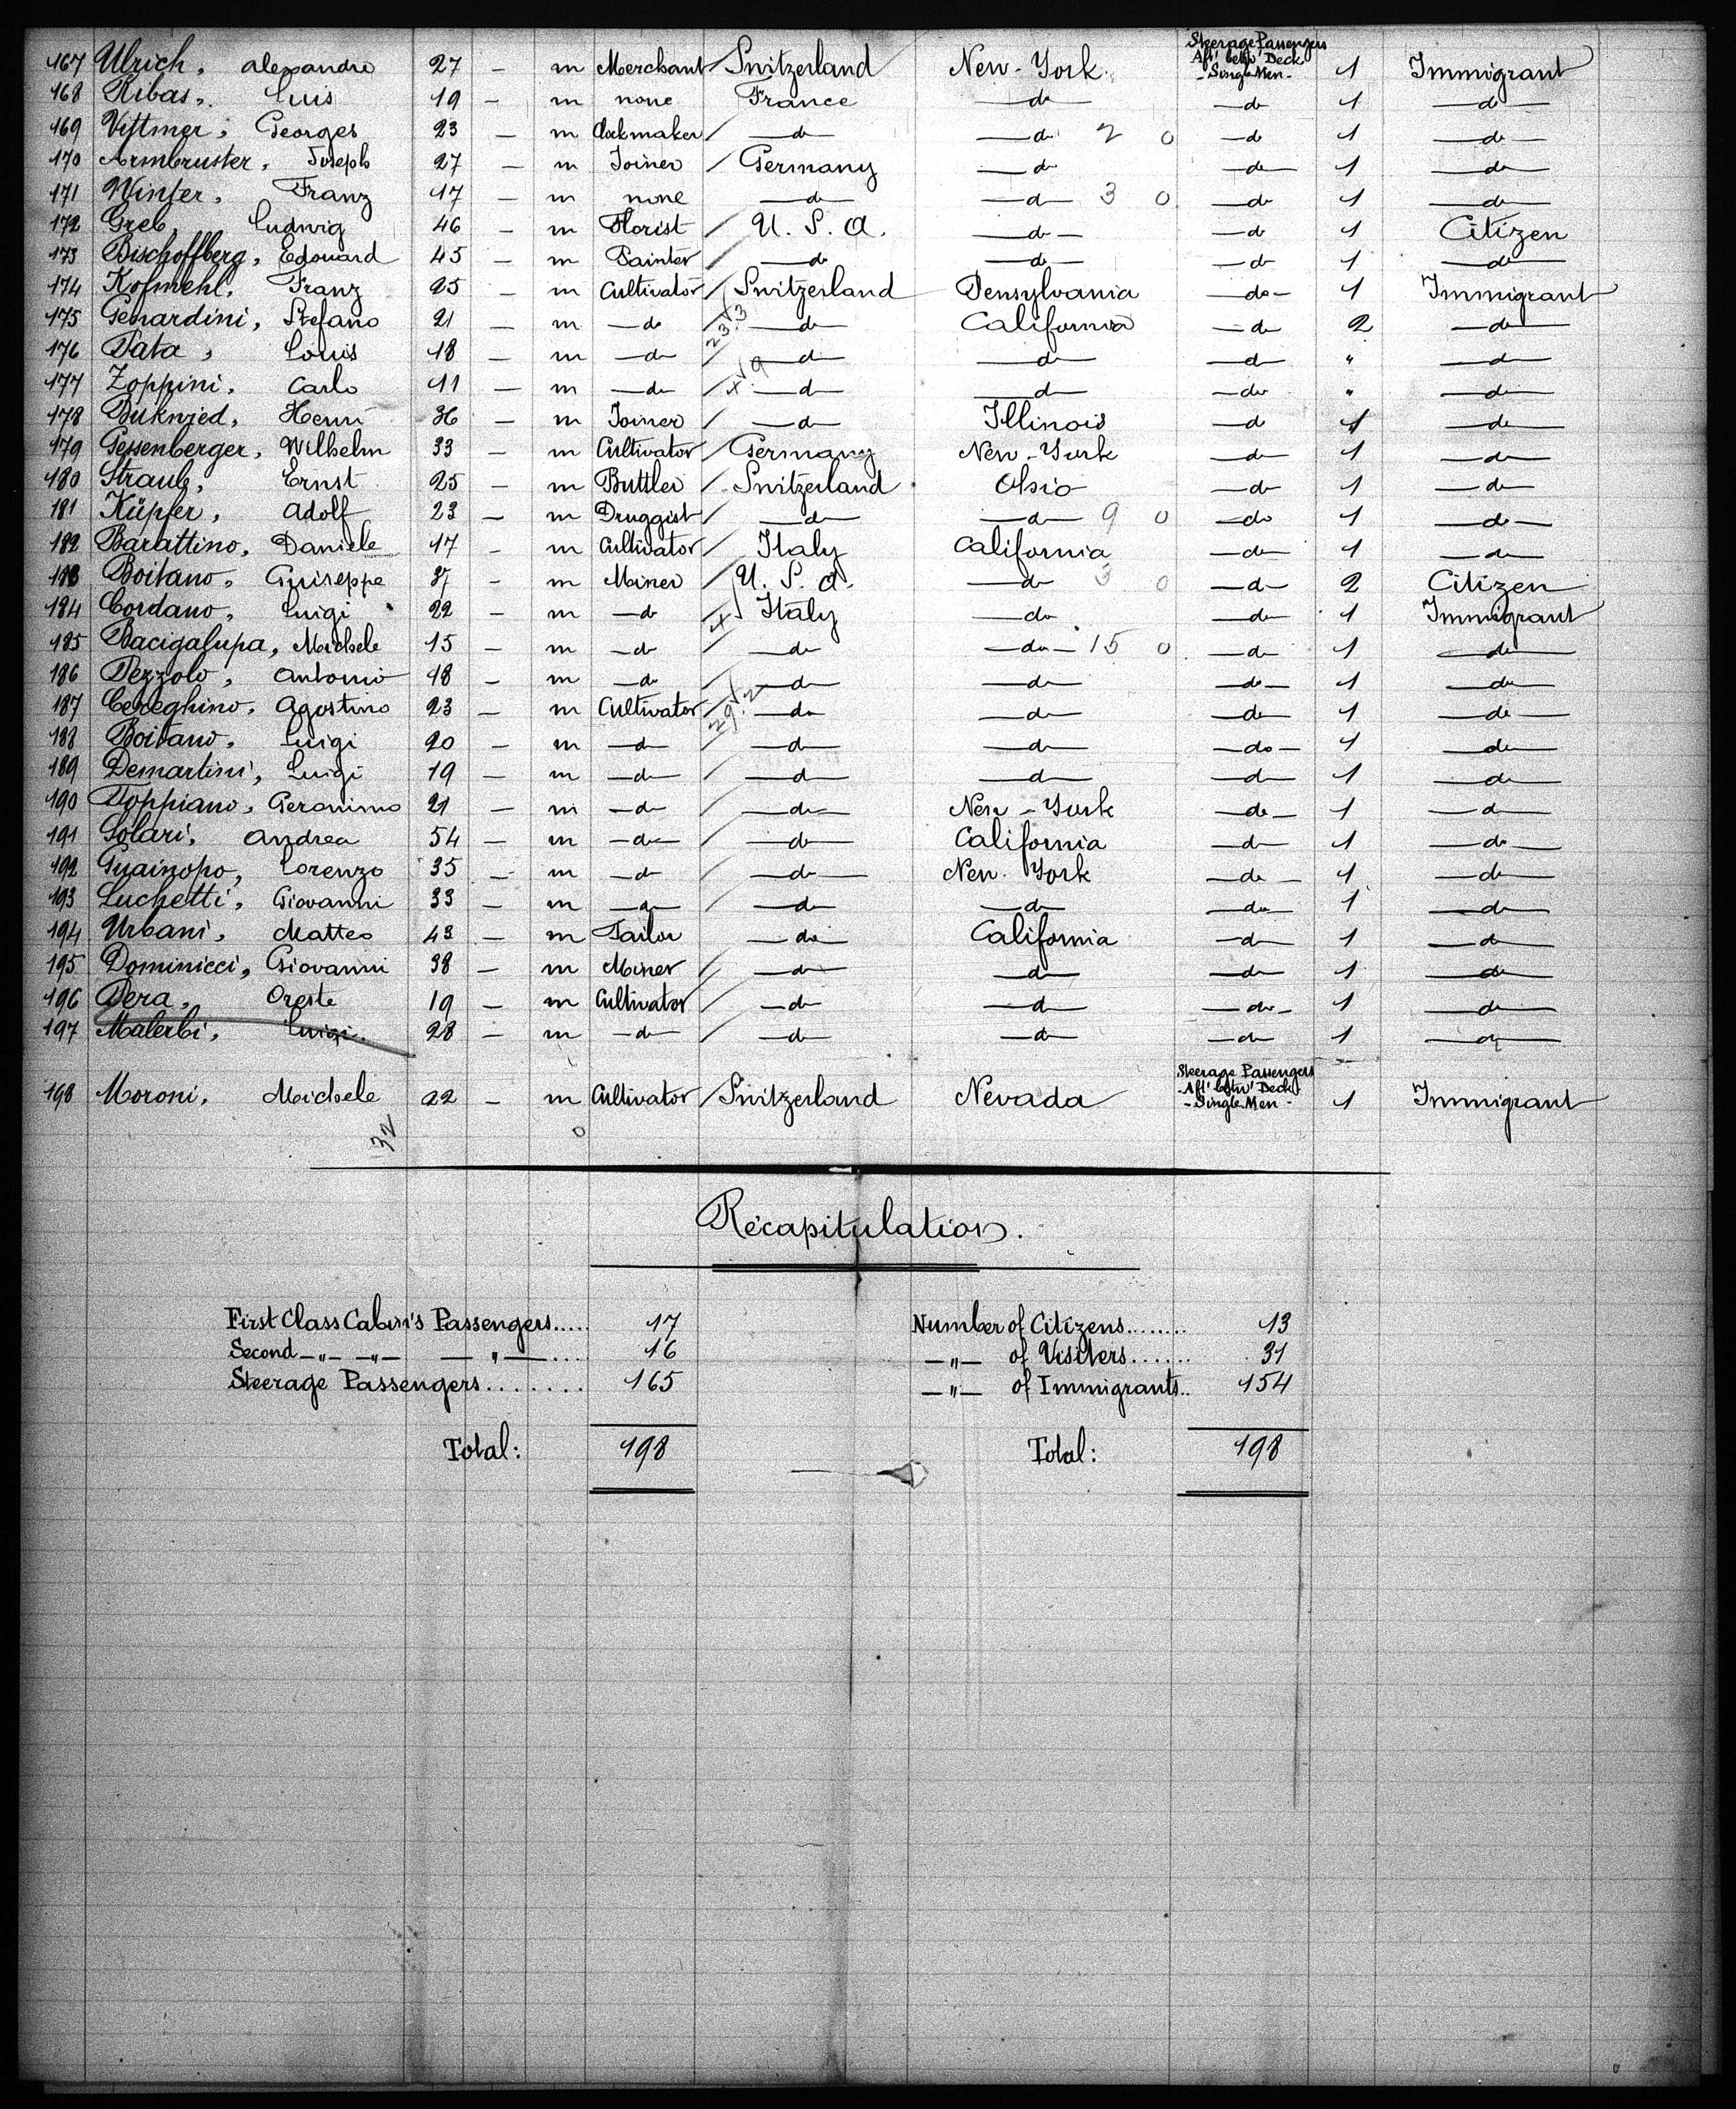 167 Ulrich, Alexandre 27 — m Merchant / Switzerland New-York. Steerage Passengers Aft' betw' Deck - Single Men - 1 Immigrant
168 Ribas, Luis 19 — m none France —do— —do 1 —do—
169 Vittmer, Georges 23 — m Clockmaker / —do— —do 2 0 —do 1 —do—
170 Armbruster, Joseph 27 — m Joiner / Germany —do —do— 1 —do—
171 Winter, Franz 17 — m none —do— —do— 3 0 —do 1 —do—
172 Greb, Ludwig 46 — m Florist / U. S. A. —do— —do 1 Citizen
173 Bischoffberg, Edouard 45 — m Painter / —do —do— —do 1 —do—
174 Kofmehl, Franz 25 — m Cultivator / Switzerland Pensylvania —do— 1 Immigrant
175 Genardini, Stefano 21 — m —do —do— California —do 2 —do
176 Pata, Louis 18 — m —do / —do— —do— —do " —do—
177 Zoppini, Carlo 11 — m —do —do— —do— —do " —do—
178 Henri 36 — m Joiner / —do— Illinois —do 1 —do—
179 Gessenberger, Wilhelm 33 — m Cultivator / Germany New-York —do— 1 —do—
180 Straub, Ernst 25 — m Buttler / Switzerland Ohio —do 1 —do—
181 Küpfer, Adolf 23 — m Druggist / —do— —do— 9 0 —do 1 —do—
182 Barattino, Daniele 17 — m Cultivator / Italy California —do— 1 —do—
183 Boitano, Guiseppe 37 — m Miner / U. S. A. —do 3 0 —do— 2 Citizen
184 Cordano, Luigi 22 — m —do / Italy —do —do— 1 Immigrant
185 Bacigalupa, Michele 15 — m —do —do —do— 15 0 —do 1 —do—
186 Pezzolo, Antonio 18 — m —do / —do— —do— —do— 1 —do—
187 Cereghino, Agostino 23 — m Cultivator / —do —do— —do— 1 —do—
188 Boitano, Luigi 20 — m —do— / —do— —do— —do— 1 —do—
189 Demartini, Luigi 19 — m —do— / —do— —do— —do— 1 —do—
190 Toppiano, Geronimo 21 — m —do— / —do— New-York —do— 1 —do
191 Solari, Andrea 54 — m —do— / —do— California —do— 1 —do—
192 Lorenzo 35 — m —do / —do— New York —do— 1 —do—
193 Luchetti, Giovanni 33 — m —do— / —do— —do— —do— 1 —do—
194 Urbani, Matteo 43 — m Tailor / —do— California —do— 1 —do—
195 Dominicci, Giovanni 38 — m Miner / —do— —do— —do— 1 —do—
196 Pera, Oreste 19 — m Cultivator / —do— —do— —do— 1 —do—
197 Malerbi, Luigi. 28 — m —do— / —do— —do— —do— 1 —do—
198 Moroni, Michele 22 — m Cultivator / Switzerland Nevada Steerage Passengers - Aft' betw' Deck - Single Men - 1 Immigrant
32 0
Récapitulation.
First Class Cabin's Passengers..... 17 Number of Citizens........ 13
Second —"— —"— —"—.... 16 —"— of Visiters...... 31
Steerage Passengers....... 165 —"— of Immigrants.. 154
Total: 198 Total: 198